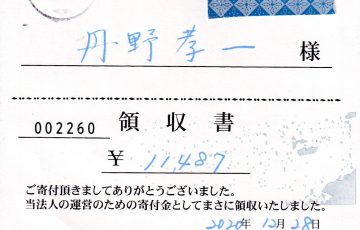 丹野孝一 様
002260 領収書
¥ 11,487
ご寄付頂きましてありがとうございました。
当法人の運営のための寄付金としてまさに領収いたしました。
2020年 12月 28日